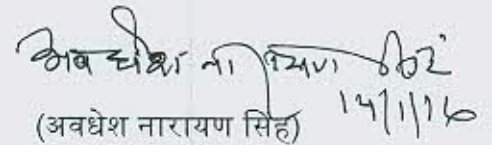 अवधेश नारायण सिंह
(अवधेश नारायण सिंह)